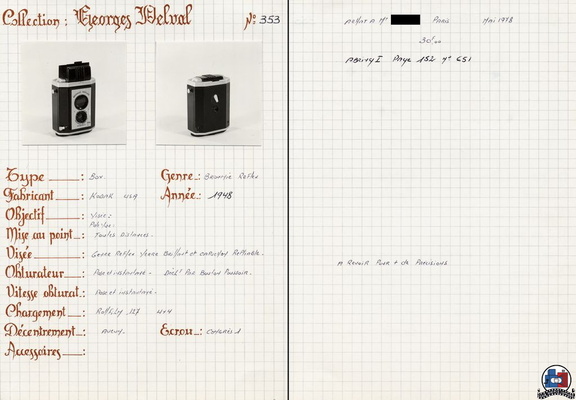 Collection : Georges Delval N°: 353
Type : Box.
Genre : Brownie Reflex
Fabricant : Kodak USA
Année : 1948
Objectif : Visée :
Mise au point : Toutes Distances.
Visée : Genre Reflex Verre
Obturateur : Pose et instantané. Décl.t Par Bouton Poussoir.
Vitesse obturat. : Pose et instantané.
Chargement : Rollfilm 127 4x4
Décentrement : Aucun.
Ecrou :
Accessoires :
Achat à Mr Paris Mai 1978
Abring I Page 152 n° 651
A Revoir Pour + de Précisions